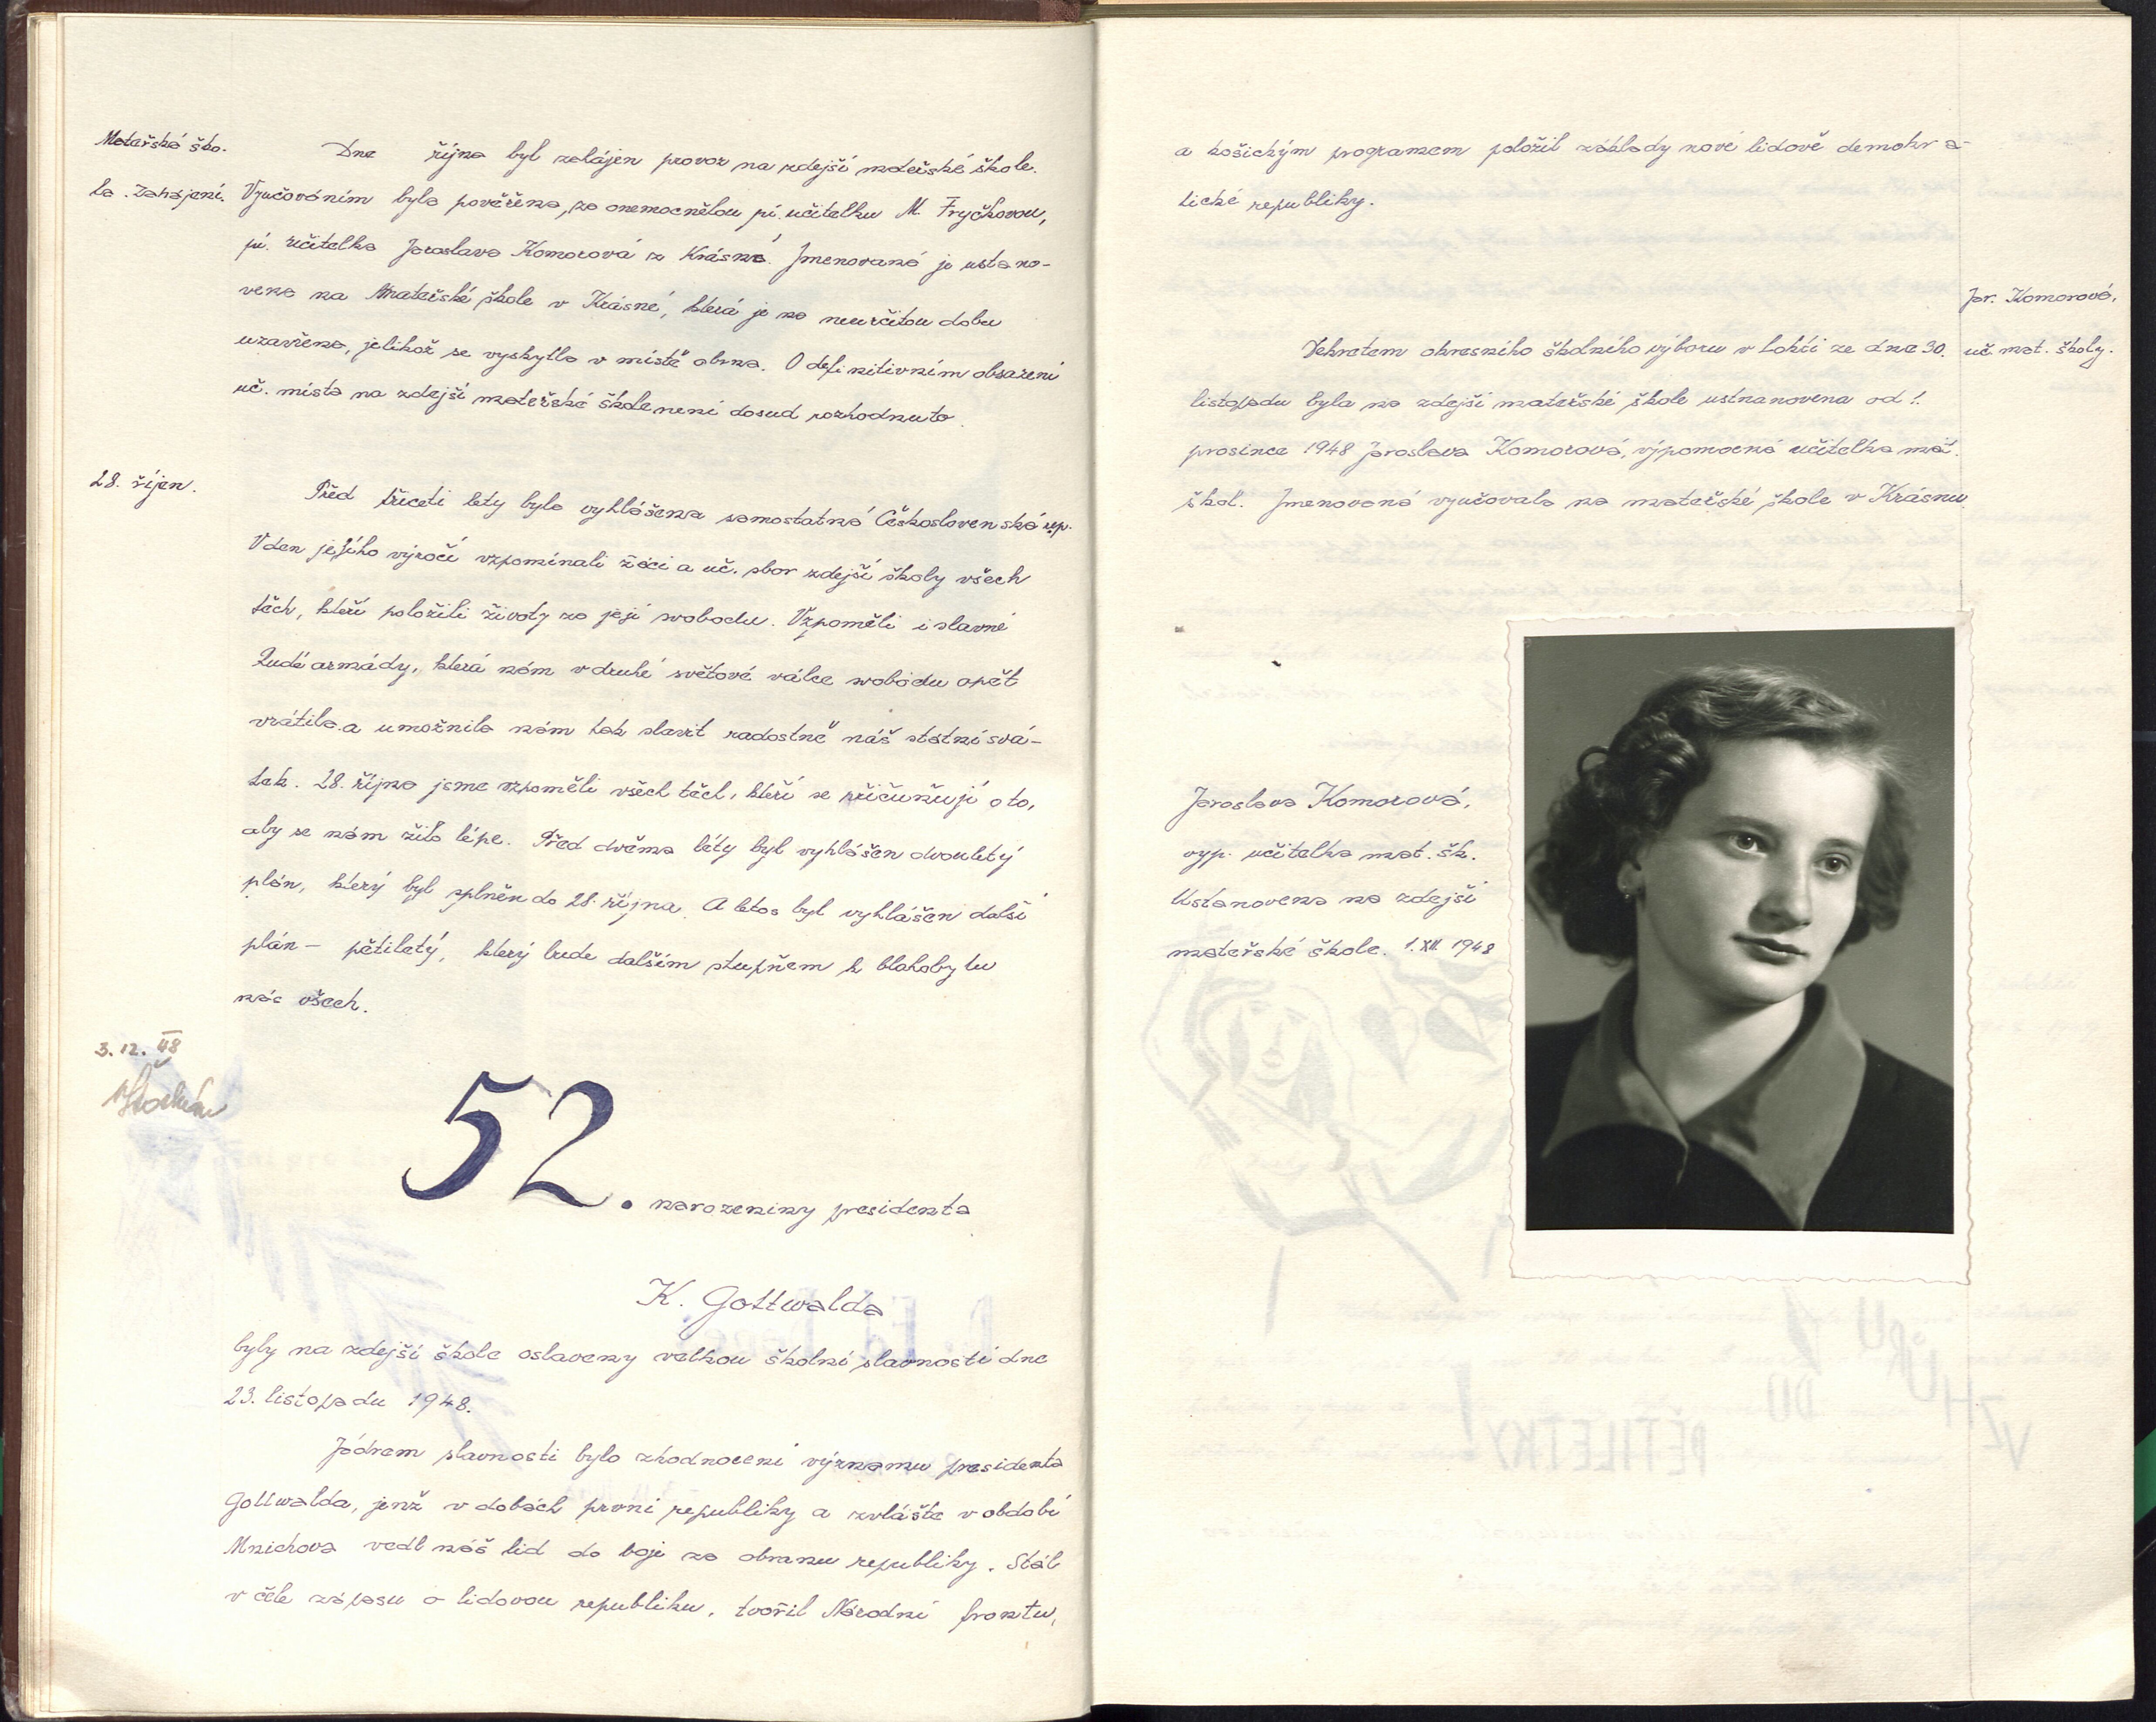 Mateřská ško-
la. Zahájení.
Dne října byl zahájen provoz na zdejší mateřské škole.
Vyučováním byla pověřena, za onemocnělou pí. učitelku M. Fryčkovou,
pí. učitelka Jaroslava Komorová z Krásné. Jmenovaná je ustano-
vena na mateřské škole v Krásné, která je na neurčitou dobu
uzavřena, jelikož se vyskytla v místě obrna. O definitivním obsazení
uč. místa na zdejší mateřské škole není dosud rozhodnuto.
28. říjen.
Před třiceti lety byla vyhlášena samostatná Československá rep.
V den jejího výročí vzpomínali žáci a uč. sbor zdejší školy všech
těch, kteří položili životy za její svobodu. Vzpoměli i slavné
Rudé armády, která nám v druhé světové válce svobodu opět
vrátila a umožnila nám tak slavit radostně náš státní svá-
tek. 28. října jsme vzpoměli všech těch, kteří se přičiňují o to,
aby se nám žilo lépe. Před dvěma léty byl vyhlášen dvouletý
plán, který byl splněn do 28. října. A letos byl vyhlášen další
plán – pětiletý, který bude dalším stupněm k blahobytu
nás všech.
3. 12. 48
52. narozeniny presidenta
K. Gottwalda
byly na zdejší škole oslaveny velkou školní slavností dne
23. listopadu 1948.
Jádrem slavnosti bylo zhodnocení významu presidenta
Gottwalda, jenž v dobách první republiky a zvláště v období
Mnichova vedl náš lid do boje za obranu republiky. Stál
v čele zápasu o lidovou republiku, tvořil Národní frontu,
a košickým programem položil základy nové lidově demokra-
tické republiky.
Jar. Komorová,
uč. mat. školy.
Dekretem okresního školního výboru v Lokti ze dne 30.
listopadu byla na zdejší mateřské škole ustnanovena od 1.
prosince 1948 Jaroslava Komorová, výpomocná učitelka mat.
škol. Jmenovaná vyučovala na mateřské škole v Krásnu.
Jaroslava Komorová,
vyp. učitelka mat. šk.
Ustanovena na zdejší
mateřské škole. 1. XII. 1948